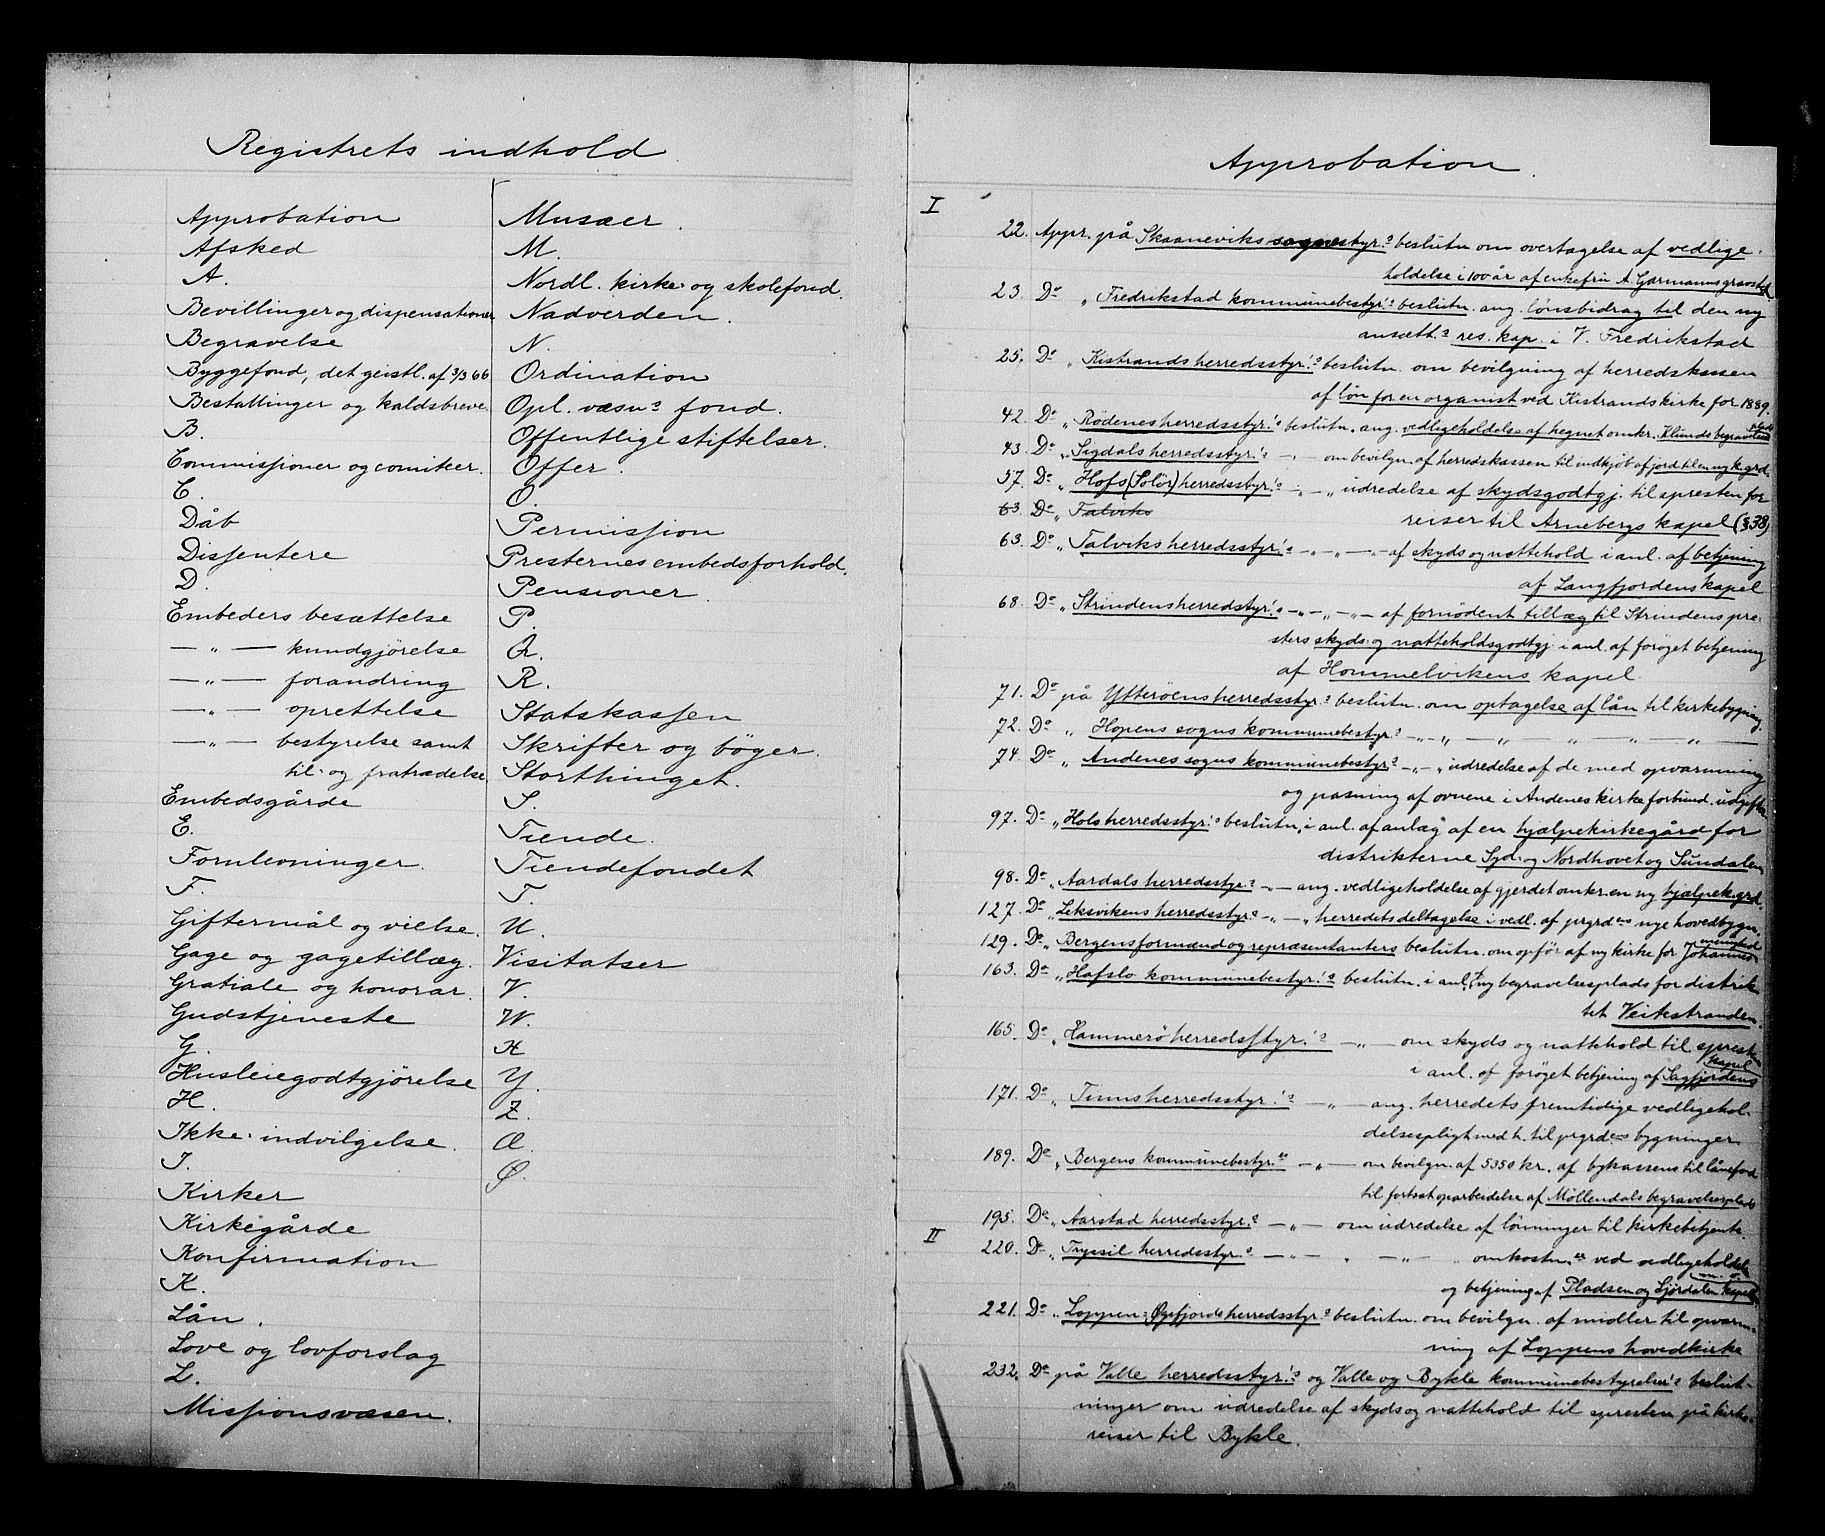 Registrets indhold.
Approbation
Afsked
A.
Bevillinger og dispensationer
Begravelse
Byggefond, det geistl. af 3/3 66
Bestallinger og kaldsbreve.
B.
Commissjoner og comiteer.
C.
Dåb
Dissentere
D.
Embeders besættelse
— „ — kundgjörelse
— „ — forandring
— „ — oprettelse
— „ — bestyrelse samt
til- og fratrædelse
Embedsgårde
E.
Fornlevninger.
F.
Giftermål og vielse.
Gage og gagetillæg.
Gratiale og honorar.
Gudstjeneste
G
Husleiegodtgjörelse
H.
Ikke-indvilgelse.
I.
Kirker
Kirkegårde
Konfirmation
K.
Lån.
Love og lovforslag
L.
Missjonsvæsen.
Musæer.
M.
Nordl. kirke- og skolefond.
Nadverden.
N.
Ordination
Opl. væsns fond.
Offentlige stiftelser.
Offer.
O.
Permissjon
Presternes embedsforhold.
Pensioner.
P.
Q.
R.
Statskassen
Skrifter og böger.
Storthinget.
S.
Tiende.
Tiendefondet
T.
U.
Visitatser
V.
W.
X
Y.
Z.
Æ.
Ø.
Approbation.
I
22. Appr. på Skaaneviks sognestyr.s beslutn om overtagelse af vedlige-
holdelse i 100 år af enkefru A. Garmanns gravsted
23. Do „ Fredrikstad kommunebestyr.s beslutn. ang. lönsbidrag til den ny
ansætt.e res. kap. i V. Fredrikstad
25. Do „ Kistrands herredsstyr.s beslutn. om bevilgning af herredskassen
af lön for en organist ved Kistrands kirke for 1889.
42. Do „ Rödenes herredsstyr.s beslutn. ang. vedligeholdelse af hegnet omkr. Klunds begravelses
plads
43. Do „ Sigdals herredsstyr.s — „ — om bevilgn. af herredskassen til indkjöb af jord til en ny k.grd.
57. Do „ Hofs (Solör) herredsstyr.s — „ — „ udredelse af skydsgodtgj. til spresten for
reiser til Arnebergs kapel (§ 38)
63. Do „ Talviks
63. Do „ Talviks herredsstyr.s — „ — „ — „ af skyds og nattehold i anl. af betjening
af Langfjordens kapel
68. Do „ Strindens herredstyr.s — „ — „ — „ — af fornödent tillæg til Strindens pre-
sters skyds- og natteholdsgodtgj i anl. af foröget betjening
af Hommelvikens kapel.
71. Do på Ytteröens herredsstyr.s beslutn. om optagelse af lån til kirkebygning.
72. Do „ Hopens sogns kommunebestyr.s — „ „ — „ — „ — „ — „ —
74. Do „ Andenes sogns kommunebestyr.s — „ — „ udredelse af de med opvarmning
og pasning af ovnene i Andenes kirke forbund. udgifter
97. Do „ Hols herredsstyr.s beslutn. i anl. af anlæg af en hjælpekirkegård for
distrikterne Syd- og Nordhovet og Sundalen
98. Do „ Aardals herredsstyr.s — „ — ang. vedligeholdelse af gjerdet omkr. en ny hjælpek.grd.
127. Do „ Leksvikens herredsstyr.s — „ — „ herredets deltagelse i vedl. af prgrdens nye hovedbygn.
129. Do „ Bergens formænd og repræsentanters beslutn. om opför. af ny kirke for Johannes
menighed
163. Do „ Hafslo kommunebestyr.s beslutn. i anl. af ny begravelsesplads for distrik-
tet Veitstranden.
165. Do „ Hammerö herredsstyr.s — „ — om skyds og nattehold til spresten
i anl. af foröget betjening af Sagfjordens
kapel
171. Do „ Tinns herredsstyr.s — „ — ang. herredets fremtidige vedligehol-
delsespligt med h. til prgrdens bygninger
189. Do „ Bergens kommunebestyr.es — „ — om bevilgn. af 5350 kr. af bykassens til lånefond
til fortsat oparbeidelse af Möllendals begravelsesplads
195. Do „ Aarstad herredsstyr.s — „ — om udredelse af lönninger til kirkebetjente.
II
220. Do „ Trysil herredsstyr.s — „ — „ — „ omkostn.er ved vedligeholdelse
og betjening af Pladsen og Ljördalen kapel
m. v.
221. Do „ Loppen- Øxfjords herredsstyr.s beslutn. om bevilgn. af midler til opvarm-
ning af Loppens hovedkirke
232. Do på Valle herredsstyr.s og Valle og Bykle kommunebestyrelser.s beslut-
ninger om udredelse af skyds og nattehold til spresten på kirke-
reiser til Bykle.